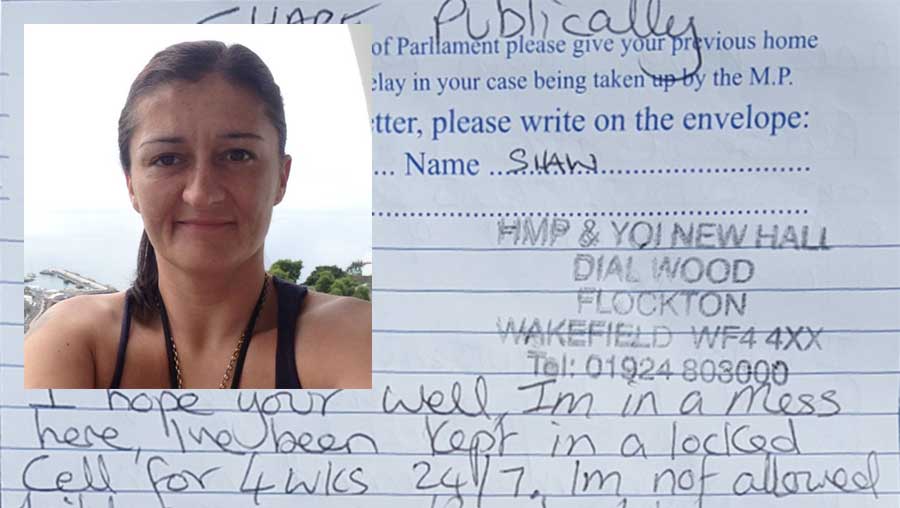 SHARE Publically
of Parliament please give your previous home
elay in your case being taken up by the M.P.
tter, please write on the envelope:
... Name ..SHAW...........................
..........................................................
HMP & YOI NEW HALL
DIAL WOOD
FLOCKTON
WAKEFIELD WF4 4XX
Tel: 01924 803000
I hope your well, Im in a mess
here, I've been kept in a locked
Cell for 4wks 24/7. Im not allowed